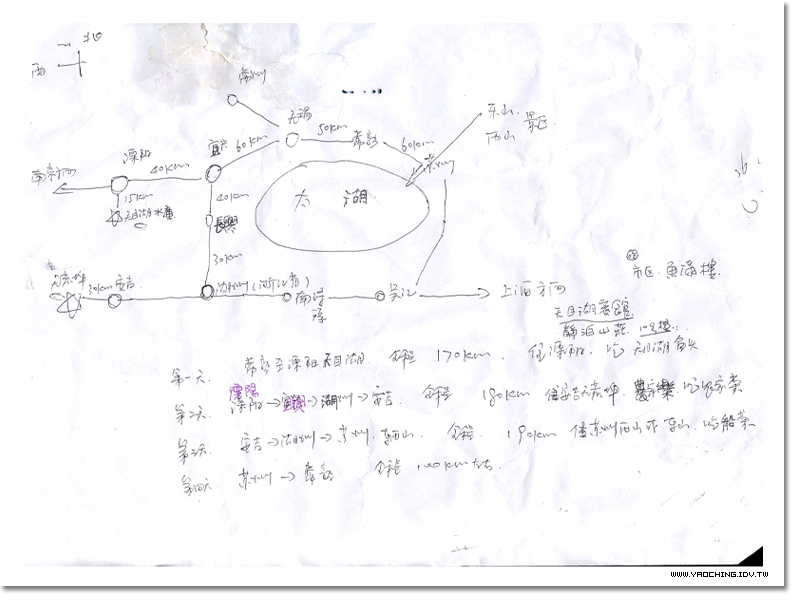 北
西
常州
无锡
50km
常熟
60km
东山
西山 景区
苏州
宜兴
60km
溧阳
40km
南京方向
15km
天目湖水庫
太湖
40km
長興
30km
安吉
30km
湖州(浙江省)
南浔
吴江
上海方向
市区.魚滿樓.
天目湖賓館
静泊山莊. 10号樓.
第一天. 常熟至溧阳天目湖. 全程 170km. 住溧阳. 吃天目湖魚头
溧陽
第二天. 溧阳→宜興→湖州→安吉. 全程 180km 住安吉大 農家樂. 吃农家菜
第三天. 安吉→湖州→苏州.东西山. 全程. 190km 住苏州西山或东山. 吃船菜
第四天. 苏州→常熟 全程 100km左右
WWW.YAOCHING.IDV.TW